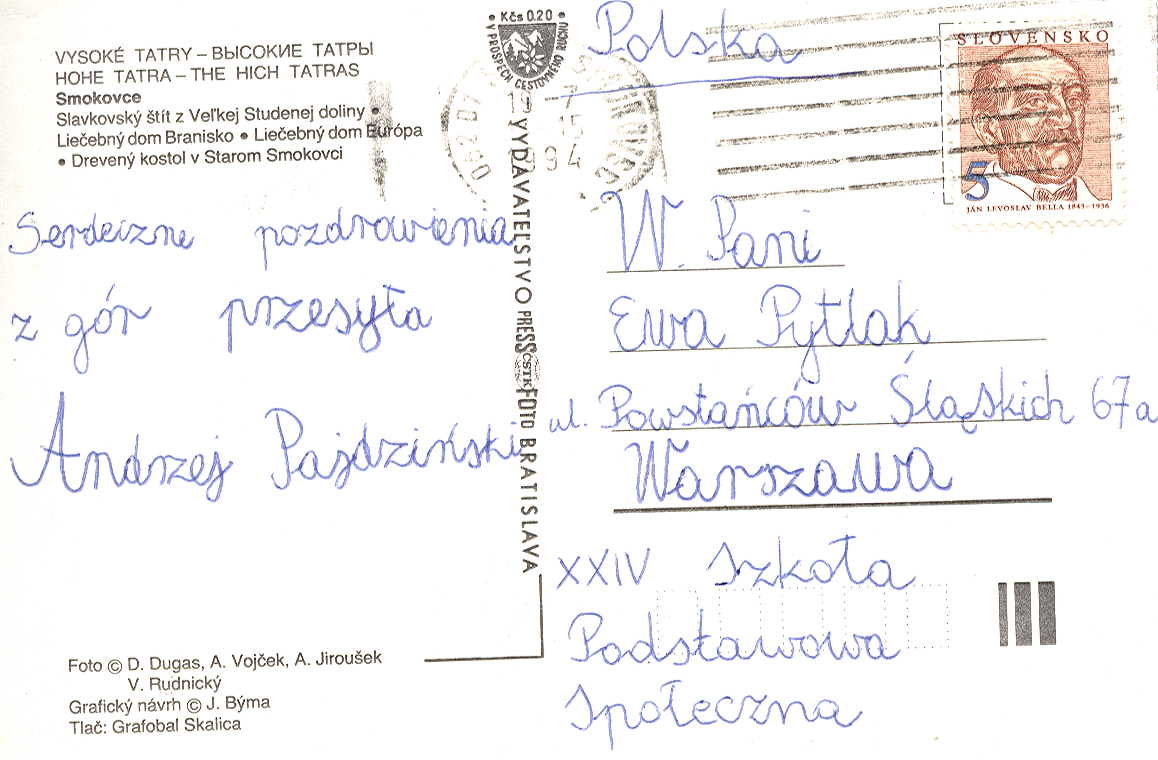 VYSOKÉ TATRY – ВЫСОКИЕ ТАТРЫ
HOHE TATRA – THE HICH TATRAS
Smokovce
Slavkovský štít z Veľkej Studenej doliny •
Liečebný dom Branisko • Liečebný dom Európa
• Drevený kostol v Starom Smokovci
Serdeczne pozdrowienia
z gór przesyła
Andrzej Pajdziński
Foto © D. Dugas, A. Vojček, A. Jiroušek
V. Rudnický
Grafický návrh © J. Býma
Tlač: Grafobal Skalica
• Kčs 0.20 •
V PROSPECH CESTOVNÉHO RUCHU
VYDAVATEĽSTVO PRESSFOTO BRATISLAVA
ČSTK
Polska
SLOVENSKO
5
JÁN LEVOSLAV BELLA 1843–1936
W. Pani
Ewa Pytlak
ul. Powstańców Śląskich 67a
Warszawa
XXIV Szkoła
Podstawowa
Społeczna